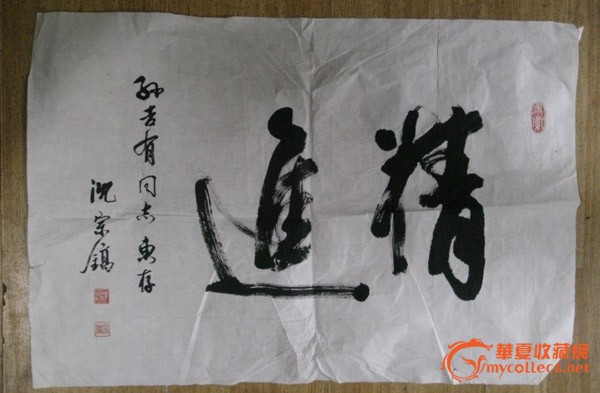 精進
孙吉有同志惠存
沈宗镐
華夏收藏網
mycollect.net